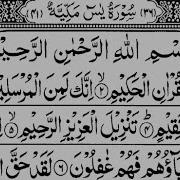 (٣٦) سُوْرَةُ يٰسٓ مَكِّيَّةٌ (٤١)
سْمِ اللهِ الرَّحْمٰنِ الرَّحِيْمِ
قُرْاٰنِ الْحَكِيْمِ ۙ﴿٢﴾ اِنَّكَ لَمِنَ الْمُرْسَلِيْ
قِيْمٍ ؕ﴿٤﴾ تَنْزِيْلَ الْعَزِيْزِ الرَّحِيْمِ ۙ﴿٥﴾
بَآؤُهُمْ فَهُمْ غٰفِلُوْنَ ﴿٦﴾ لَقَدْ حَقَّ